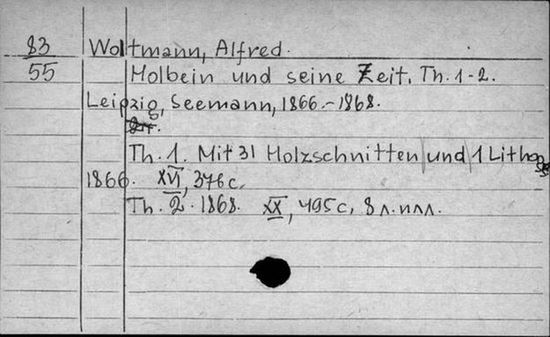 83 Woltmann, Alfred.
55 Holbein und seine Zeit. Th. 1-2.
Leipzig, Seemann, 1866.-1868.
Th. 1. Mit 31 Holzschnitten und 1 Lithog
1866. XVI, 376 с.
Th. 2. 1868. XX, 495 с, 8 л. илл.